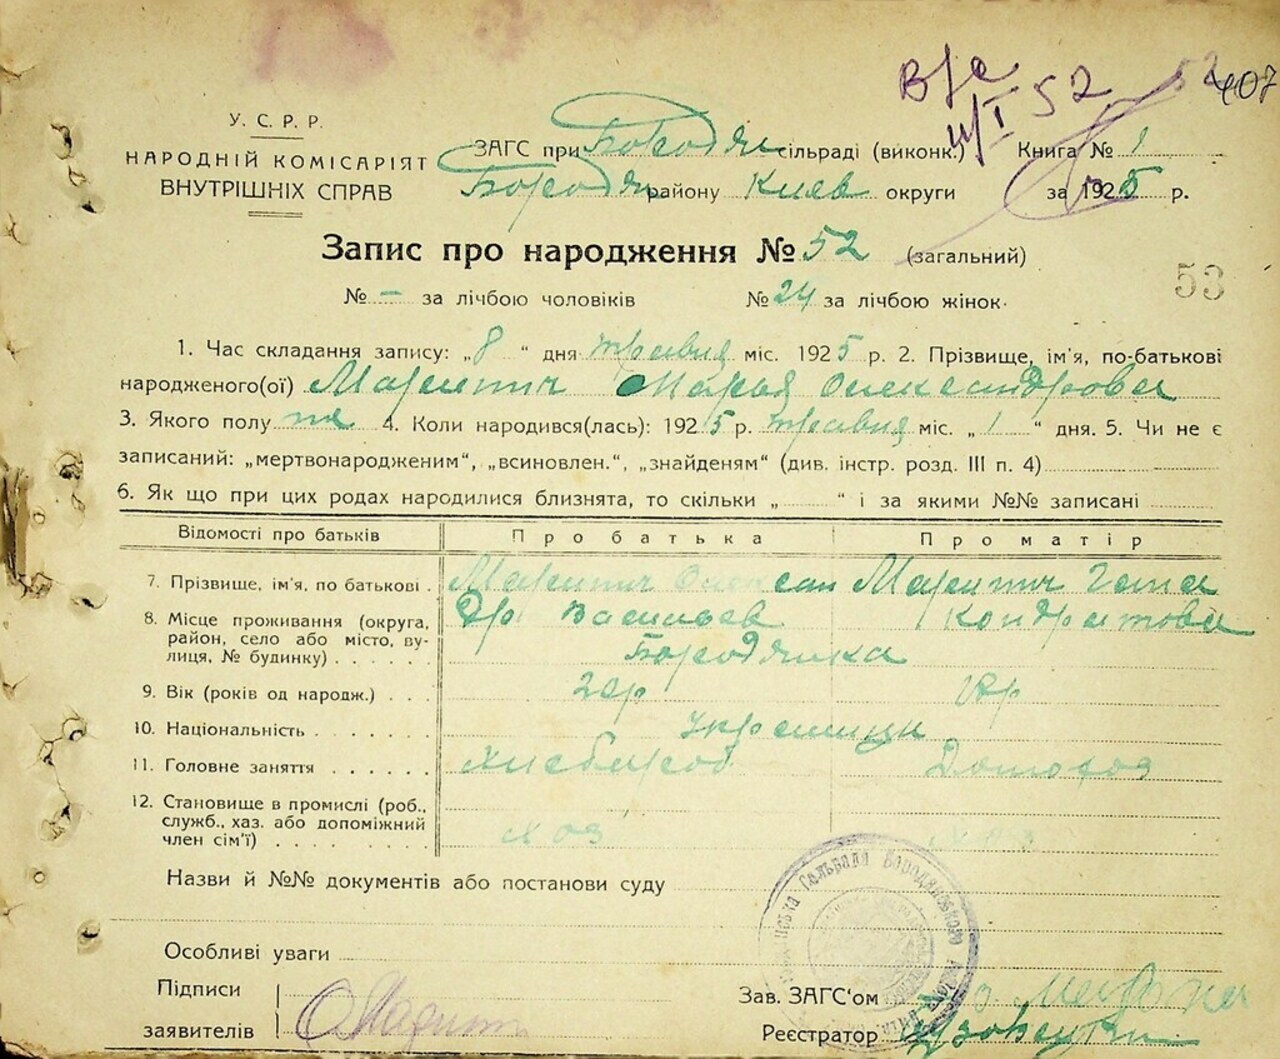 52 407
У. С. Р. Р.
НАРОДНІЙ КОМІСАРІЯТ
ВНУТРІШНІХ СПРАВ
ЗАГС при Бородян сільраді (виконк.) Книга № 1
Бородян району Києв округи за 1925 р.
Запис про народження № 52 (загальний)
53
№ – за лічбою чоловіків № 24 за лічбою жінок.
1. Час складання запису: „8“ дня травня міс. 1925 р. 2. Прізвище, ім'я, по-батькові
народженого(ої) Марья Олександрова
3. Якого полу ж 4. Коли народився(лась): 1925 р. травня міс. „1“ дня. 5. Чи не є
записаний: „мертвонародженим“, „всиновлен.“, „знайденям“ (див. інстр. розд. III п. 4)
6. Як що при цих родах народилися близнята, то скільки „ “ і за якими №№ записані
Відомості про батьків Про батька Про матір
7. Прізвище, ім'я, по батькові .
8. Місце проживання (округа, Др Васильев Кондратова
район, село або місто, ву-
лиця, № будинку) . . . . . . Бородянка
9. Вік (років од народж.) . . .
10. Національність . . . . . . . Українци
11. Головне заняття . . . . . . Хлебороб
12. Становище в промислі (роб.,
служб., хаз. або допоміжний
член сім'ї) . . . . . . . . . хоз
Назви й №№ документів або постанови суду
Особливі уваги
Підписи
заявителів
Зав. ЗАГС'ом
Реєстратор
Сельрада Бородянського